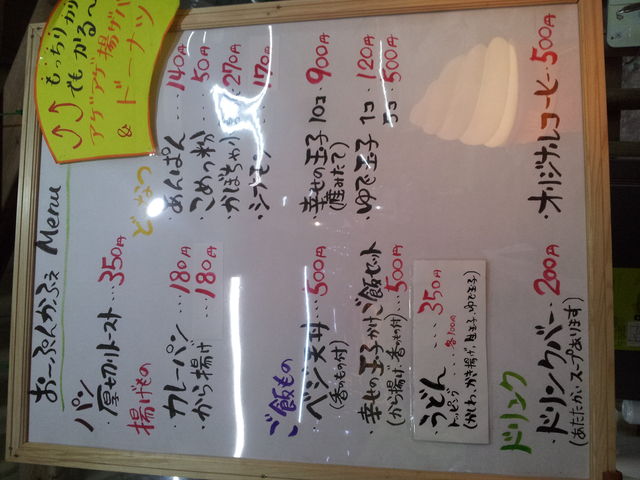 おーぷんかふぇ Menu
もっちりカリ
でもかる〜
アゲアゲ揚げパン
&ドーナツ
パン
・厚切りトースト…350円
揚げもの
・カレーパン……180円
・から揚げ……180円
どーなつ
・あんぱん…140円
・こめっ粉…50円
・かぼちゃ…270円
・シナモン…170円
ご飯もの
・ベジ天丼…500円
(香の物付)
・幸せの玉子かけご飯セット
(から揚げ、香の物付)…500円
・うどん……350円
トッピング……各100円
・幸せの玉子 10コ 900円
(産みたて)
・ゆで玉子 1コ 120円
5コ 500円
ドリンク
・ドリンクバー…200円
(あたたか、スープあります)
・オリジナルコーヒー…500円